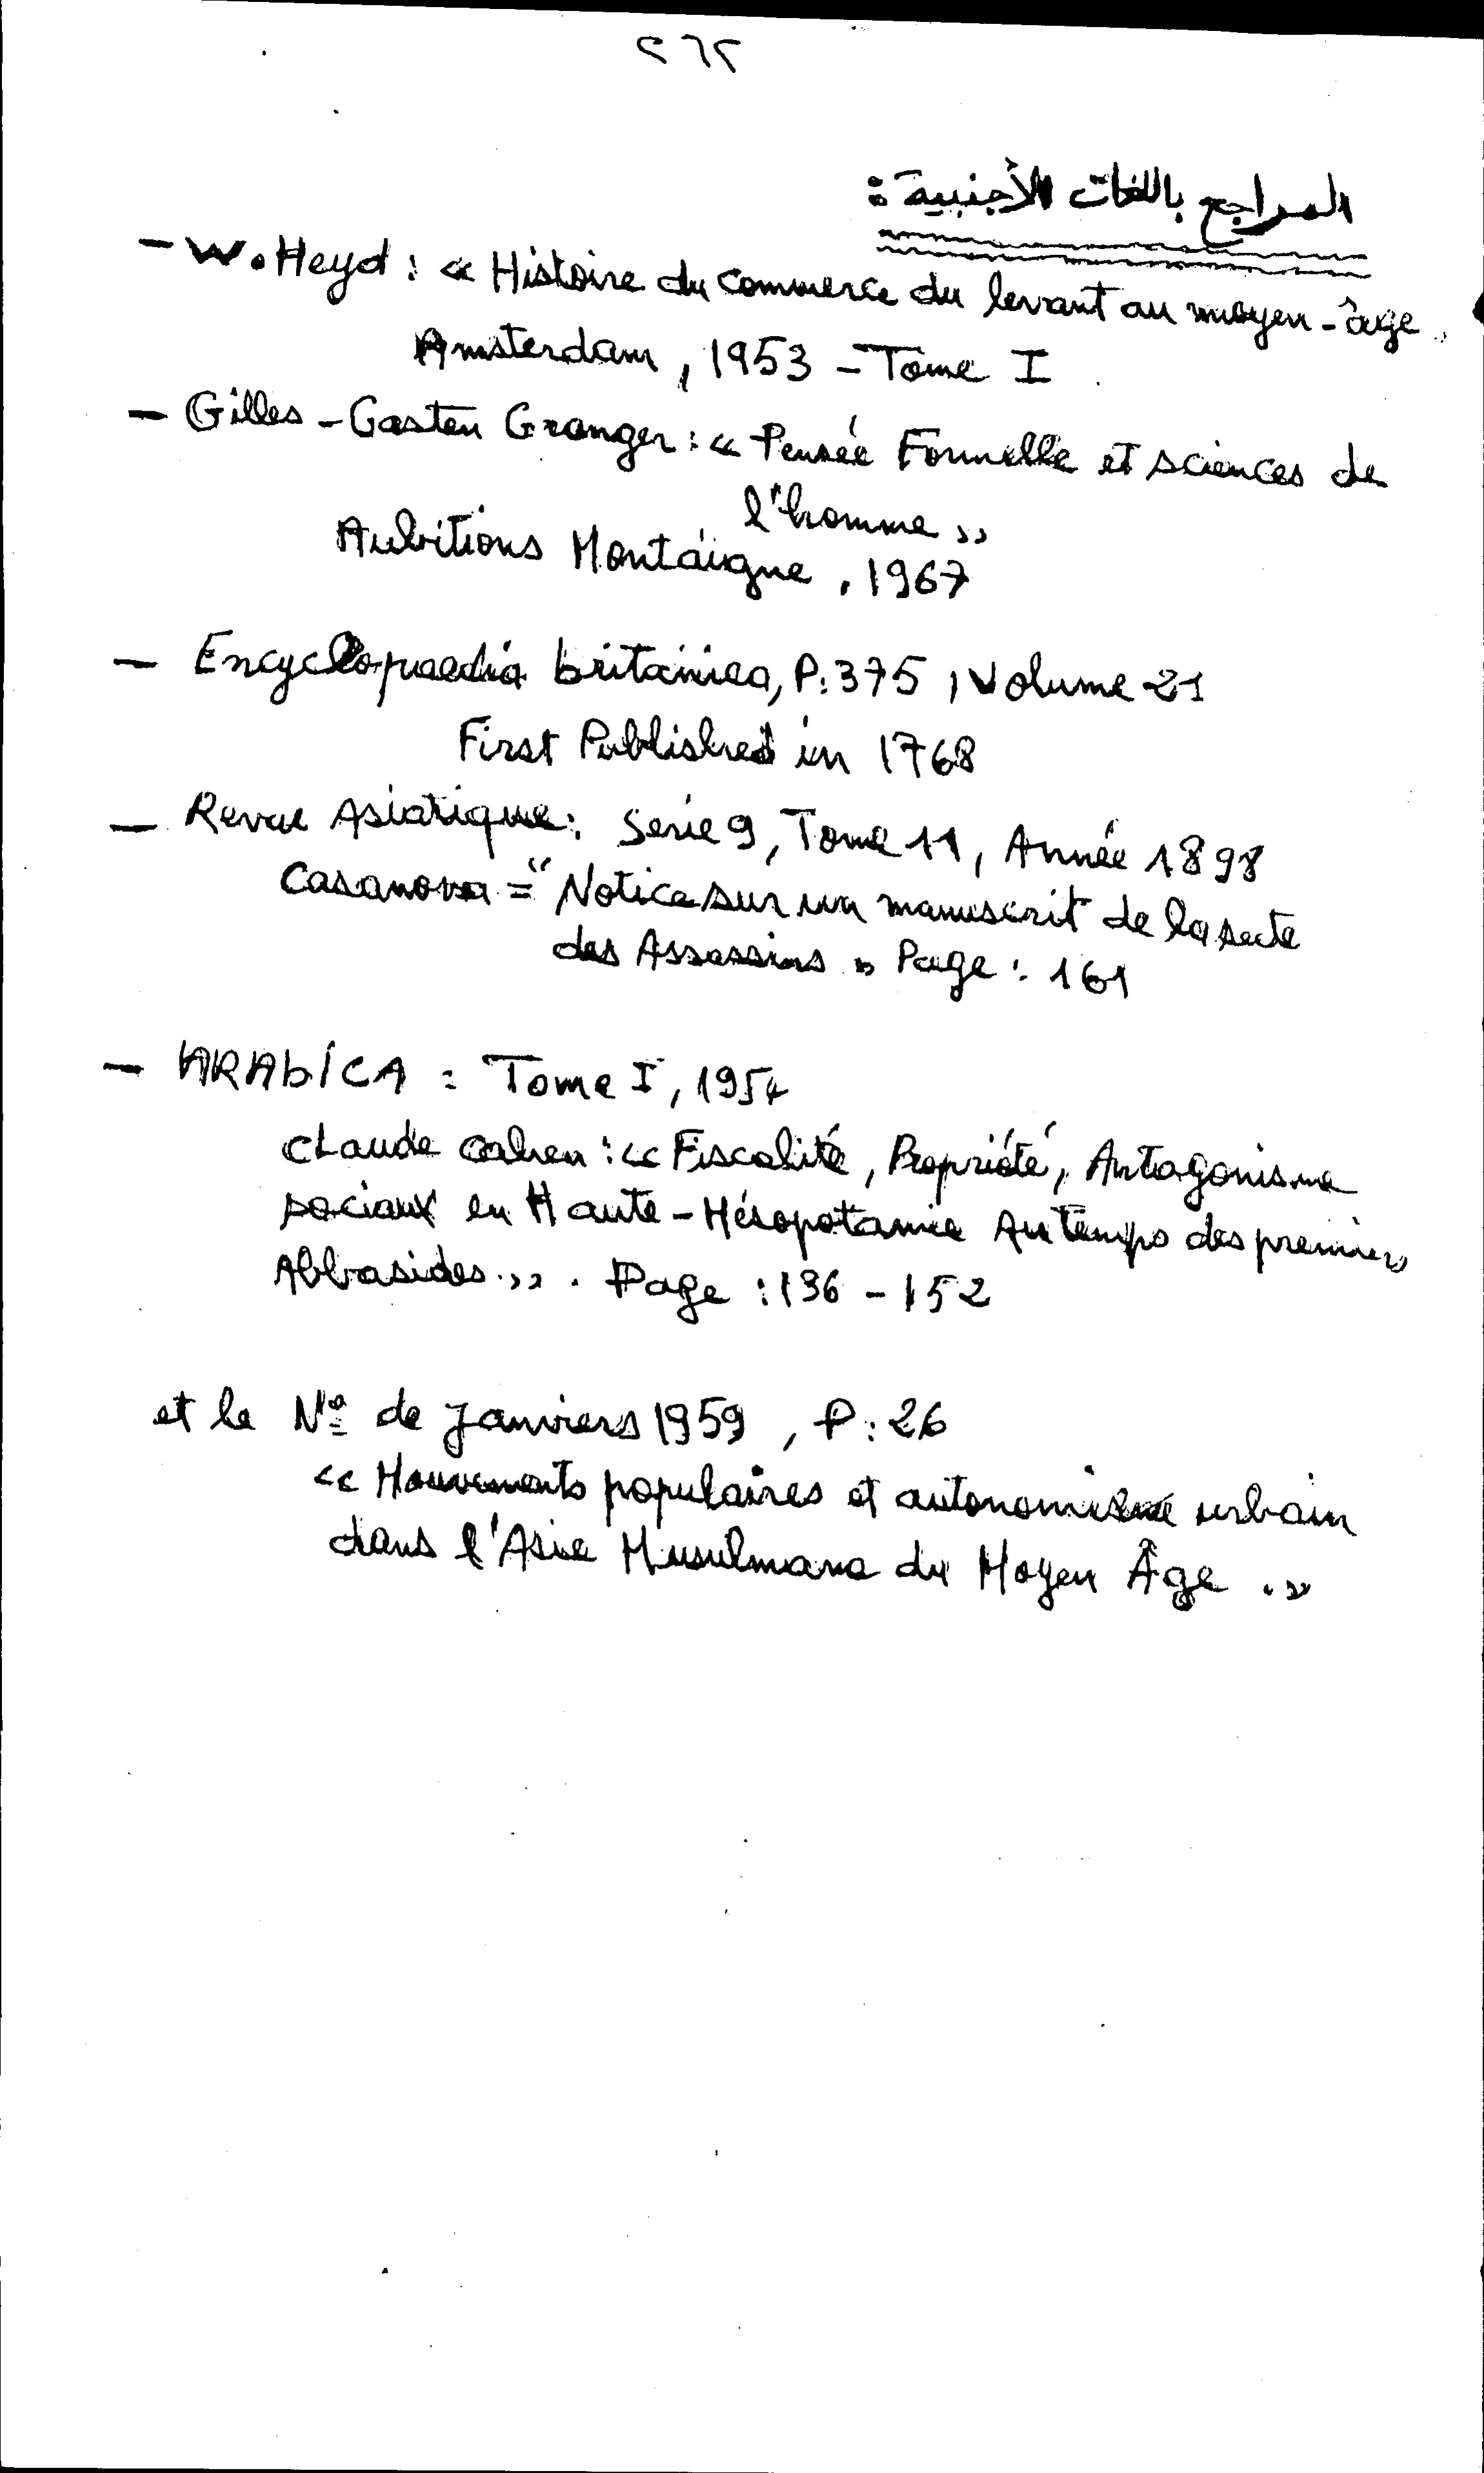 المراجع باللغات الأجنبية :
- W. Heyd : « Histoire du commerce du levant au moyen-âge
Amsterdam, 1953 - Tome I
- Gilles - Gaston Granger : « Pensée Formelle et sciences de
l'homme »
Aubitions Montaigne, 1967
- Encyclopaedia britanica, P: 375, Volume 21
First Published in 1768
- Revue Asiatique : Serie 9, Tome 11, Année 1898
Casanova = " Notice sur un manuscrit de la secte
des Assassins » Page : 161
- ARAbICA : Tome I, 1954
Claude Cahen : « Fiscalité, Propriété, Antagonisme
sociaux en Haute - Mésopotamie Au temps des premiers
Abbasides. » . Page : 136 - 152
et le Nº de Janviers 1959, P: 26
« Mouvements populaires et autonomisme urbain
dans l'Asie Musulmane du Moyen Âge . »